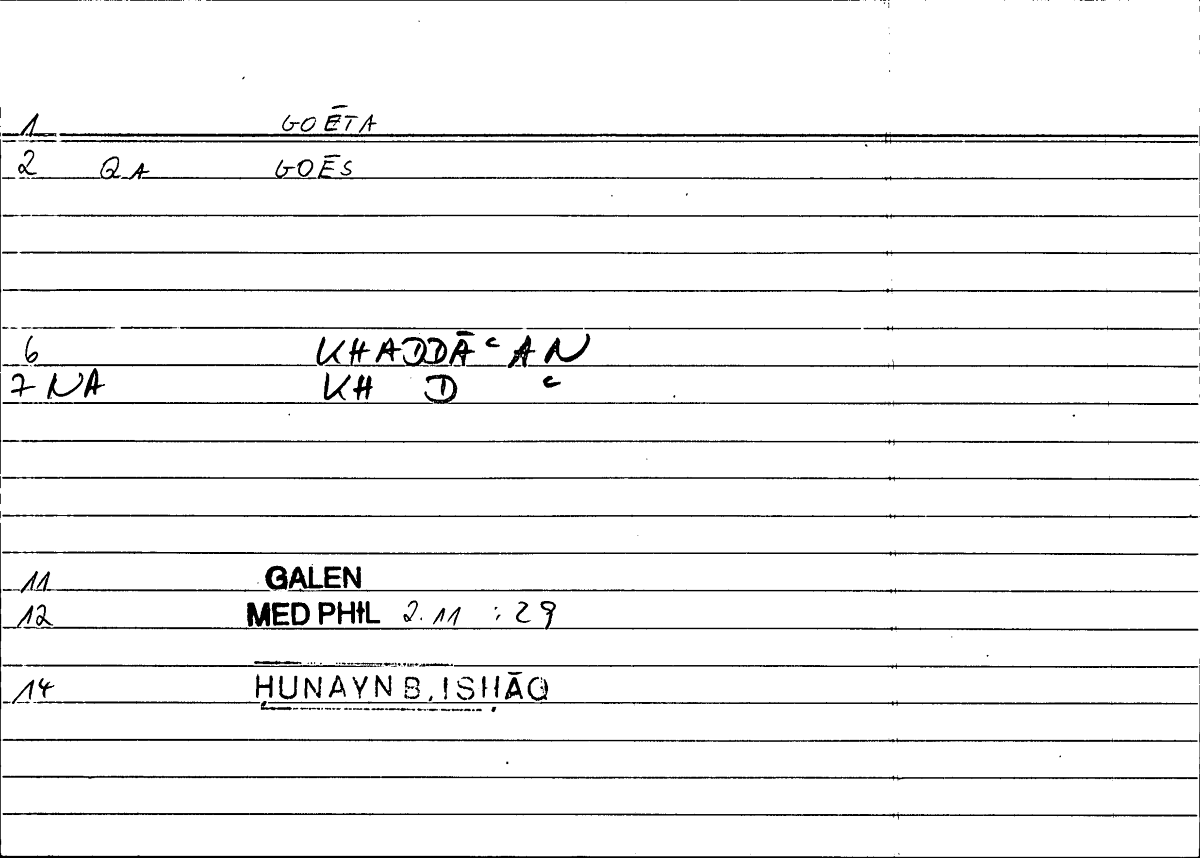 1 GOĒTA
2 QA GOĒS
6 KHADDĀᶜAN
7 NA KH D ᶜ
11 GALEN
12 MED PHIL 2.11 : 29
14 ḤUNAYN B. ISḤĀQ